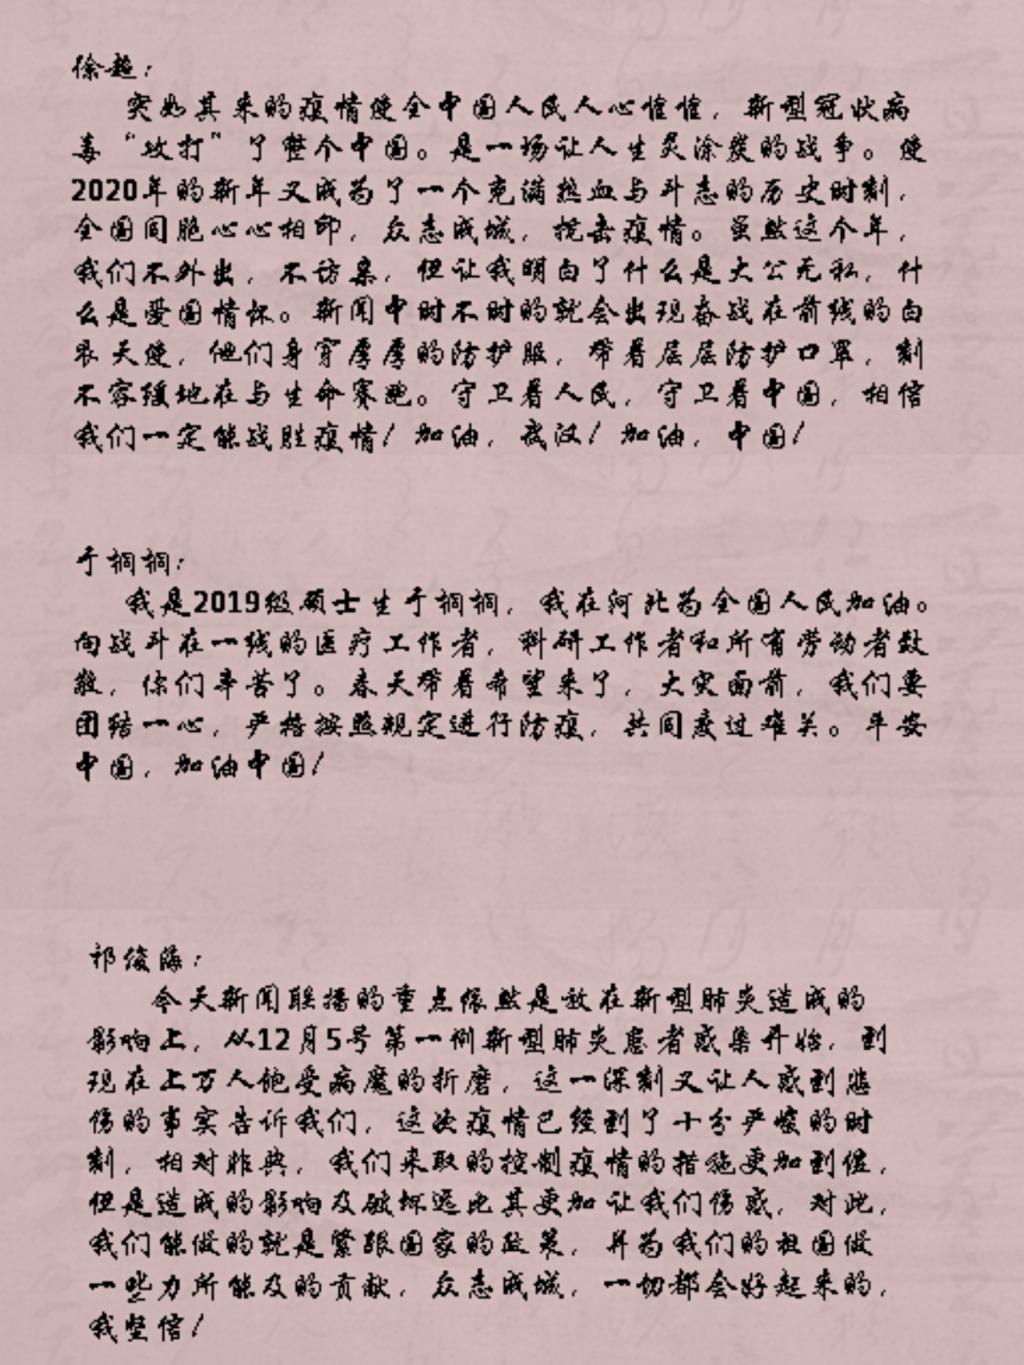 徐超：
突如其来的疫情使全中国人民人心惶惶，新型冠状病
毒“攻打”了整个中国。是一场让人生灵涂炭的战争。使
2020年的新年又成为了一个充满热血与斗志的历史时刻，
全国同胞心心相印，众志成城，抗击疫情。虽然这个年，
我们不外出，不访亲，但让我明白了什么是大公无私，什
么是爱国情怀。新闻中时不时的就会出现奋战在前线的白
衣天使，他们身穿厚厚的防护服，带着层层防护口罩，刻
不容缓地在与生命赛跑。守卫着人民，守卫着中国，相信
我们一定能战胜疫情！加油，武汉！加油，中国！
于桐桐：
我是2019级硕士生于桐桐，我在河北为全国人民加油。
向战斗在一线的医疗工作者，科研工作者和所有劳动者致
敬，你们辛苦了。春天带着希望来了，大灾面前，我们要
团结一心，严格按照规定进行防疫，共同度过难关。平安
中国，加油中国！
祁俊海：
今天新闻联播的重点依然是放在新型肺炎造成的
影响上，从12月5号第一例新型肺炎患者感染开始，到
现在上万人饱受病魔的折磨，这一深刻又让人感到悲
伤的事实告诉我们，这次疫情已经到了十分严峻的时
刻，相对非典，我们采取的控制疫情的措施更加到位，
但是造成的影响及破坏远比其更加让我们伤感，对此，
我们能做的就是紧跟国家的政策，并为我们的祖国做
一些力所能及的贡献，众志成城，一切都会好起来的，
我坚信！